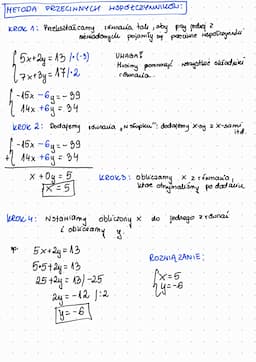 METODA PRZECIWNYCH WSPÓŁCZYNNIKÓW:
KROK 1: Przekształcamy równania tak, aby przy jednej z
niewiadomych pojawiły się przeciwne współczynniki
{ 5x+2y=13 /·(-3)
7x+3y=17 /·2
UWAGA!
Musimy pomnożyć wszystkie składniki
równania.
{ -15x-6y=-39
14x+6y=34
KROK 2: Dodajemy równania "w słupku": dodajemy x-sy z x-sami
itd.
{ -15x-6y=-39
+ 14x+6y=34
x+0y=5
x=5
KROK 3: obliczamy x z równania,
które otrzymaliśmy po dodaniu
KROK 4: Wstawiamy obliczony x do jednego z równań
i obliczamy y.
np. 5x+2y=13
5·5+2y=13
25+2y=13 /-25
2y=-12 /:2
y=-6
ROZWIĄZANIE:
{ x=5
y=-6